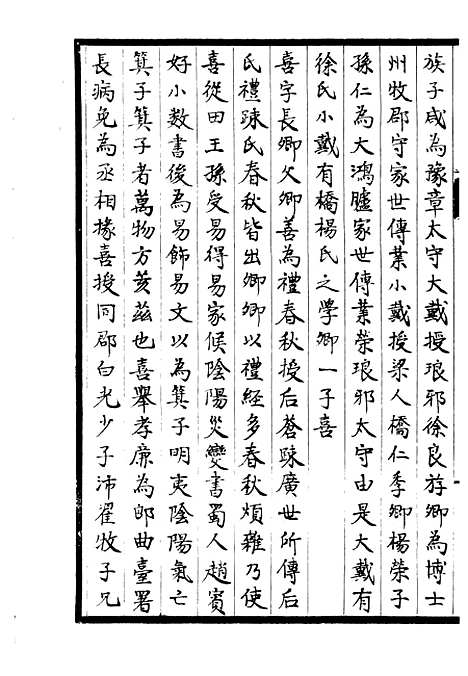 族子咸為豫章太守大戴授琅邪徐良斿卿為博士
州牧郡守家世傳業小戴授梁人橋仁季卿楊榮子
孫仁為大鴻臚家世傳業榮琅邪太守由是大戴有
徐氏小戴有橋楊氏之學卿一子喜
喜字長卿父卿善為禮春秋授后蒼疎廣世所傳后
氏禮疎氏春秋皆出卿卿以禮經多春秋煩雜乃使
喜從田王孫受易得易家候陰陽災變書蜀人趙賓
好小數書後為易飾易文以為箕子明夷陰陽氣亡
箕子箕子者萬物方荄茲也喜舉孝廉為郎曲臺署
長病免為丞相掾喜授同郡白光少子沛翟牧子兄